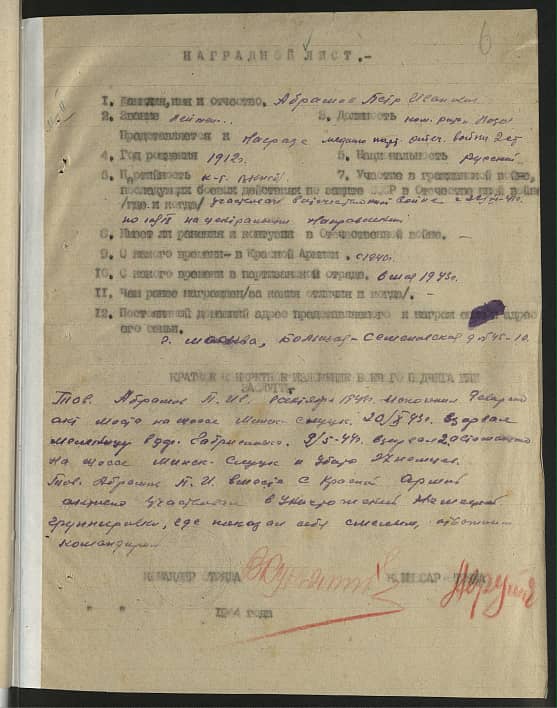 6
НАГРАДНОЙ ЛИСТ.-
1. Фамилия, имя и отчество. Абрамов Петр Иванович
2. Звание лейтен.. 3. Должность ком.
Представляется к награде медалью парт. отеч. войны 2 ст
4. Год рождения 1912г. 5. Национальность русский
6. Партийность к-т. ВЛКСМ. 7. Участие в гражданской войне,
последующих боевых действиях по защите СССР в Отечественной войне
/где и когда/ участвовал в отечественной войне с
по на центральном направлении
8. Имеет ли ранения и контузии в Отечественной войне.
9. С какого времени - в Красной Армии. с 1940г.
10. С какого времени в партизанском отряде. в мая 1943г.
11. Чем ранее награжден/за какие отличия и когда/. -
12. Постоянный домашний адрес представляемого к награде и адрес
его семьи.
г. Москва, Большая-Семеновская д №45-10.
КРАТКОЕ КОНКРЕТНОЕ ИЗЛОЖЕНИЕ БОЕВОГО ПОДВИГА ИЛИ
ЗАСЛУГИ.
Тов. Абрамов П. Ив. сентября
моста на шоссе Минск-Слуцк. 20/X 43г. взорвал
мельницу в дер. 9/5-44г. взорвал 2 автомашины
на шоссе Минск-Слуцк и убито немцев.
Тов. Абрамов П. И. вместе с Красной Армией
активно участвовал в уничтожении немецкой
группировки, где показал себя смелым, отважным
командиром
КОМАНДИР ОТРЯДА КОМИССАР ОТРЯДА
" " 1944 года